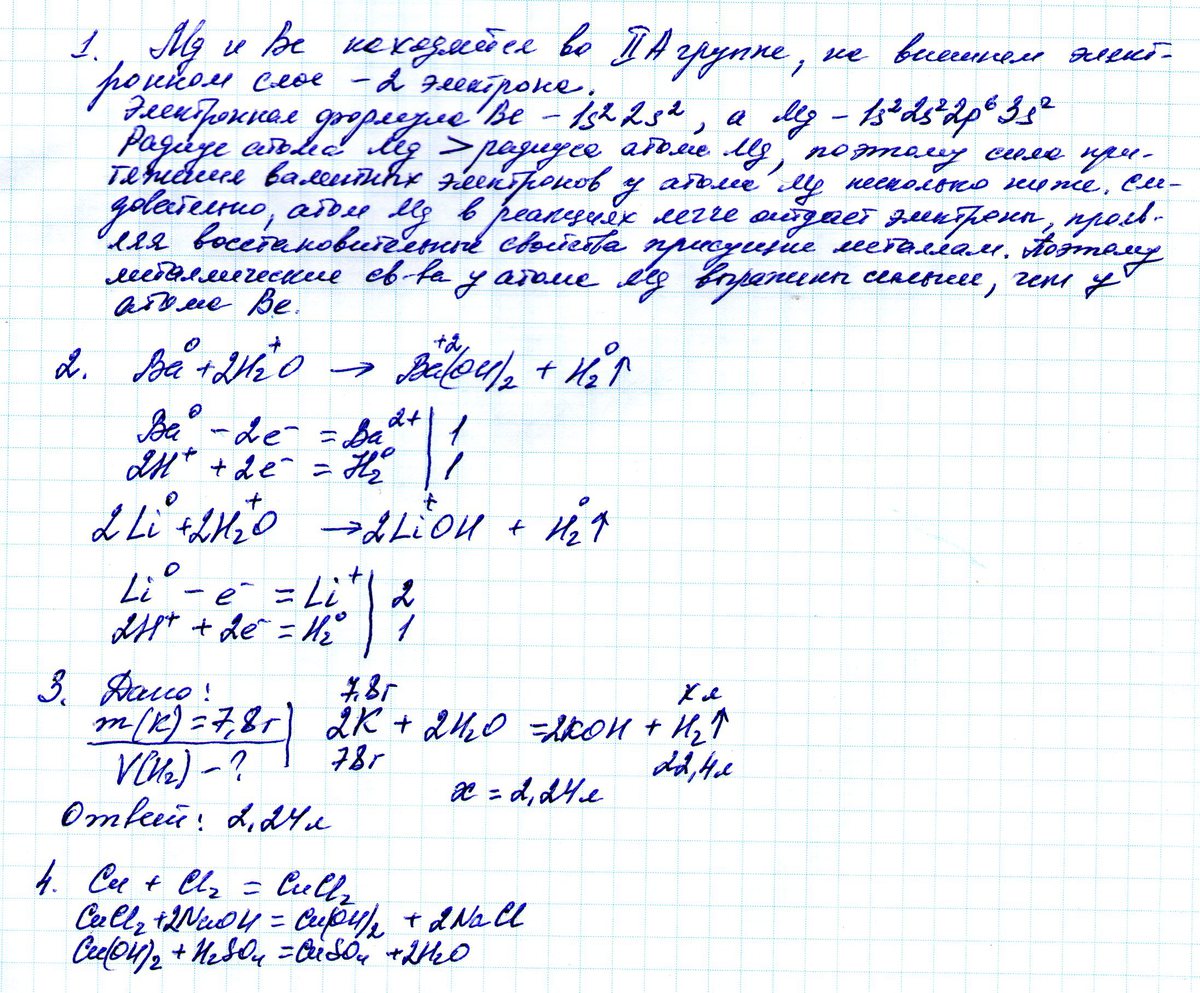 1. Mg и Be находятся во II А группе, на внешнем элект-
ронном слое – 2 электрона.
Электронная формула Be – 1s² 2s², а Mg – 1s² 2s² 2p⁶ 3s²
Радиус атома Mg > радиуса атома Mg, поэтому сила при-
тяжения валентных электронов у атома Mg несколько ниже. Сле-
довательно, атом Mg в реакциях легче отдает электроны, прояв-
ляя восстановительные свойства присущие металлам. Поэтому
металлические св-ва у атома Mg выражены сильнее, чем у
атома Be.
2. Ba⁰ + 2H₂⁺O → Ba⁺²(OH)₂ + H₂⁰↑
Ba⁰ – 2e⁻ = Ba²⁺ | 1
2H⁺ + 2e⁻ = H₂⁰ | 1
2Li⁰ + 2H₂⁺O → 2Li⁺OH + H₂⁰↑
Li⁰ – e⁻ = Li⁺ | 2
2H⁺ + 2e⁻ = H₂⁰ | 1
3. Дано: 7,8г x л
m(K) = 7,8г 2K + 2H₂O = 2KOH + H₂↑
V(H₂) – ? 78г 22,4л
x = 2,24л
Ответ: 2,24л
4. Cu + Cl₂ = CuCl₂
CuCl₂ + 2NaOH = Cu(OH)₂ + 2NaCl
Cu(OH)₂ + H₂SO₄ = CuSO₄ + 2H₂O